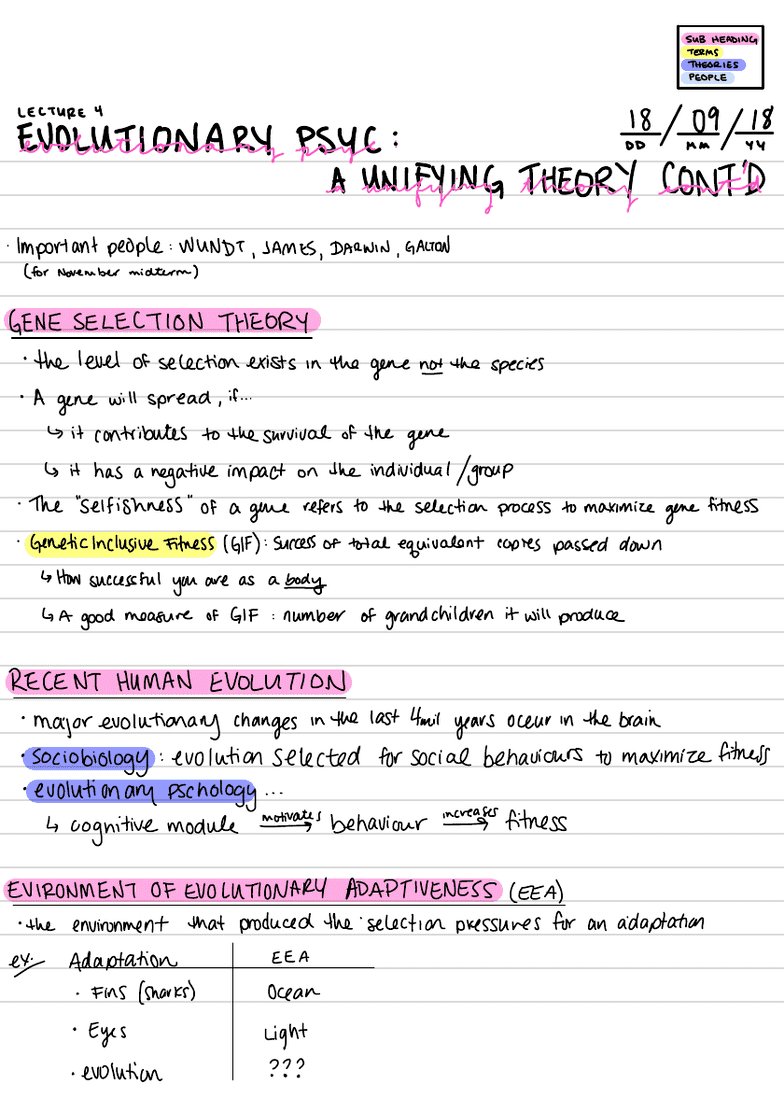 SUB HEADING
TERMS
THEORIES
PEOPLE
LECTURE 4
18/09/18
DD MM YY
EVOLUTIONARY PSYC:
evolutionary psyc
A UNIFYING THEORY CONT'D
a unifying theory cont'd
· Important people: WUNDT, JAMES, DARWIN, GALTON
(for November midterm)
GENE SELECTION THEORY
· the level of selection exists in the gene not the species
· A gene will spread, if...
↳ it contributes to the survival of the gene
↳ it has a negative impact on the individual/group
· The "selfishness" of a gene refers to the selection process to maximize gene fitness
· Genetic Inclusive Fitness (GIF): Success of total equivalent copies passed down
↳ How successful you are as a body
↳ A good measure of GIF: number of grandchildren it will produce
RECENT HUMAN EVOLUTION
· major evolutionary changes in the last 4mil years occur in the brain
· sociobiology: evolution selected for social behaviours to maximize fitness
· evolutionary pschology...
↳ cognitive module motivates→ behaviour increases→ fitness
EVIRONMENT OF EVOLUTIONARY ADAPTIVENESS (EEA)
· the environment that produced the selection pressures for an adaptation
ex. Adaptation EEA
· Fins (sharks) Ocean
· Eyes Light
· evolution ???